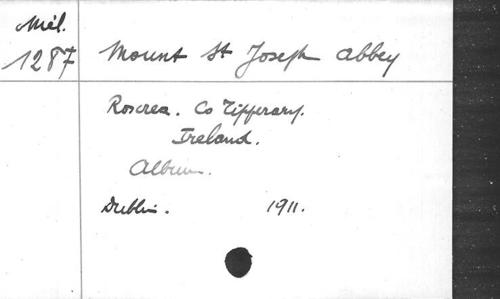 Mél.
1287
Mount St Joseph abbey
Roscrea. Co Tipperary.
Ireland.
Album.
Dublin. 1911.